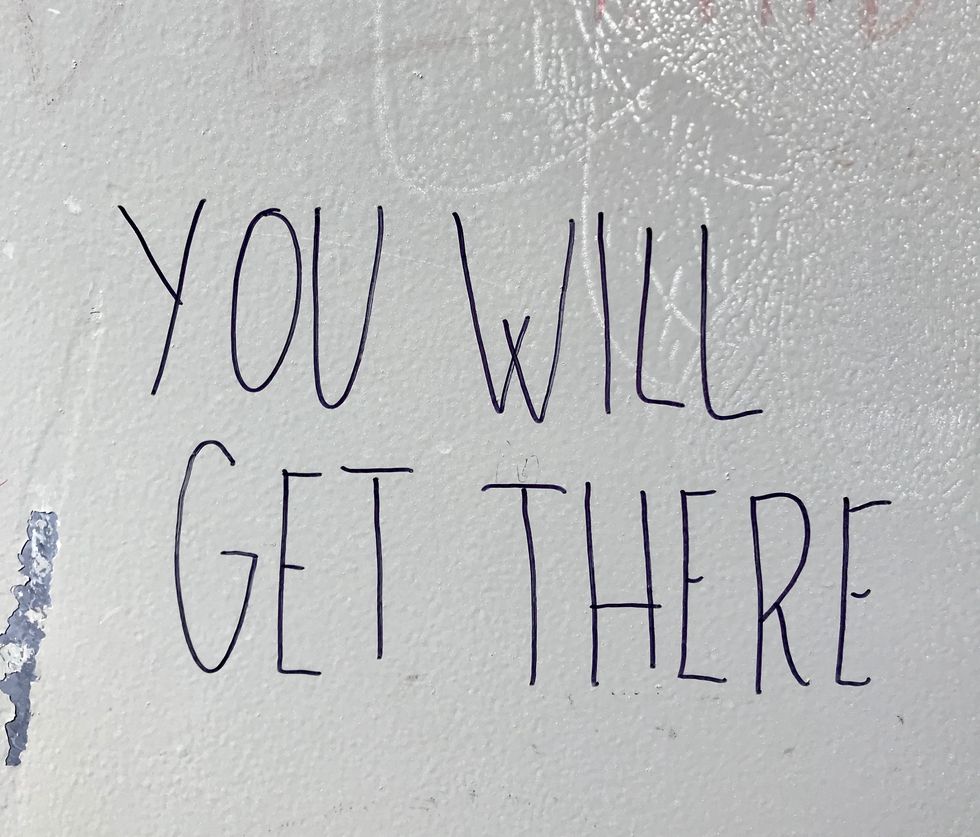 YOU WILL
GET THERE